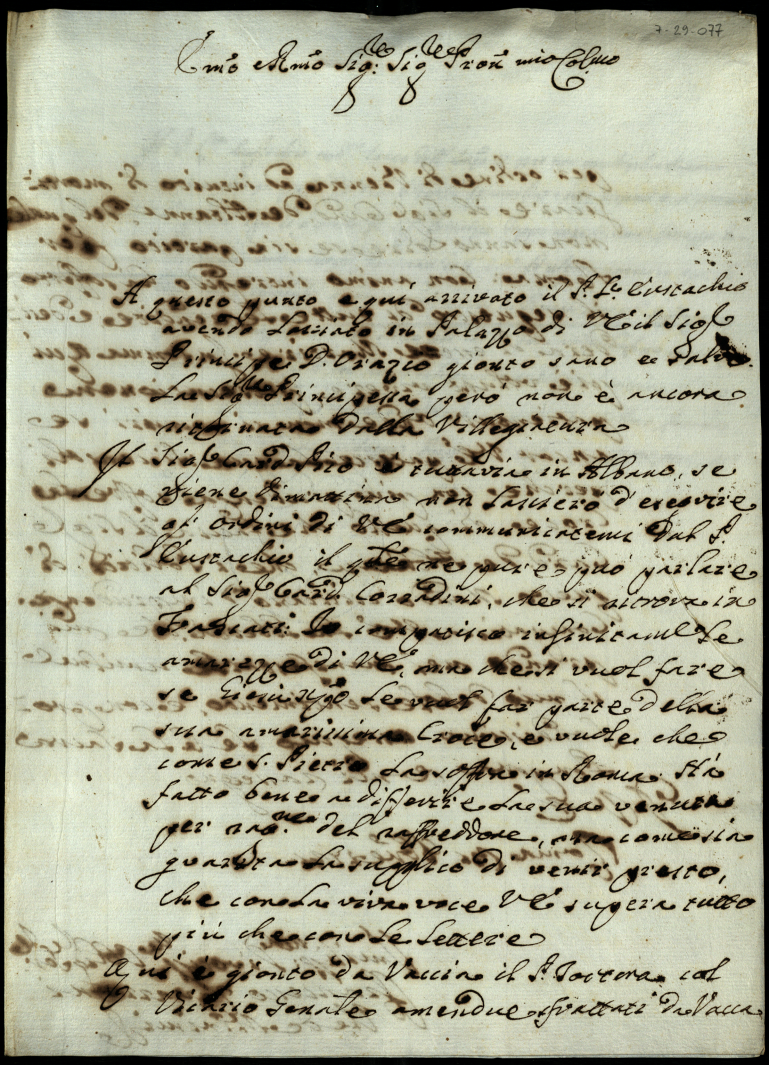 7-29-077
Emo e Rmo Sig:re Sig:re Pron mio Colmo
A questo punto è qui arrivato il P. Eustachio
avendo lasciato in Palazzo di VE il Sigr
Principe D. Orazio gionto sano e salvo.
La Sigra Principessa però non è ancora
ritornata dalla Villegiatura
Il Sigr Card Pico è tuttavia in Albano, se
viene dimattina non lasciero d'eseguire
gl'ordini di VE communicatemi dal P.
Eustachio il qle ne pure può parlare
al Sigr Card Corradini, che si ritrova in
Frascati. Io compatisco infinitamte le
amarezze di VE, ma che si vuol fare
se Giesù Xpo le vuol far parte della
sua amarissima Croce, e vuole che
come S. Pietro la soffra in Roma. Ha
fatto bene a differire la sua venuta
per rag.ne del raffreddore, ma come sia
guarita la supplico di venir presto,
che con la viva voce VE supera tutto
più che con le lettere
Qui è gionto da Vaccia il P. col
Vicario Genale amendue sfrattati da Vacca